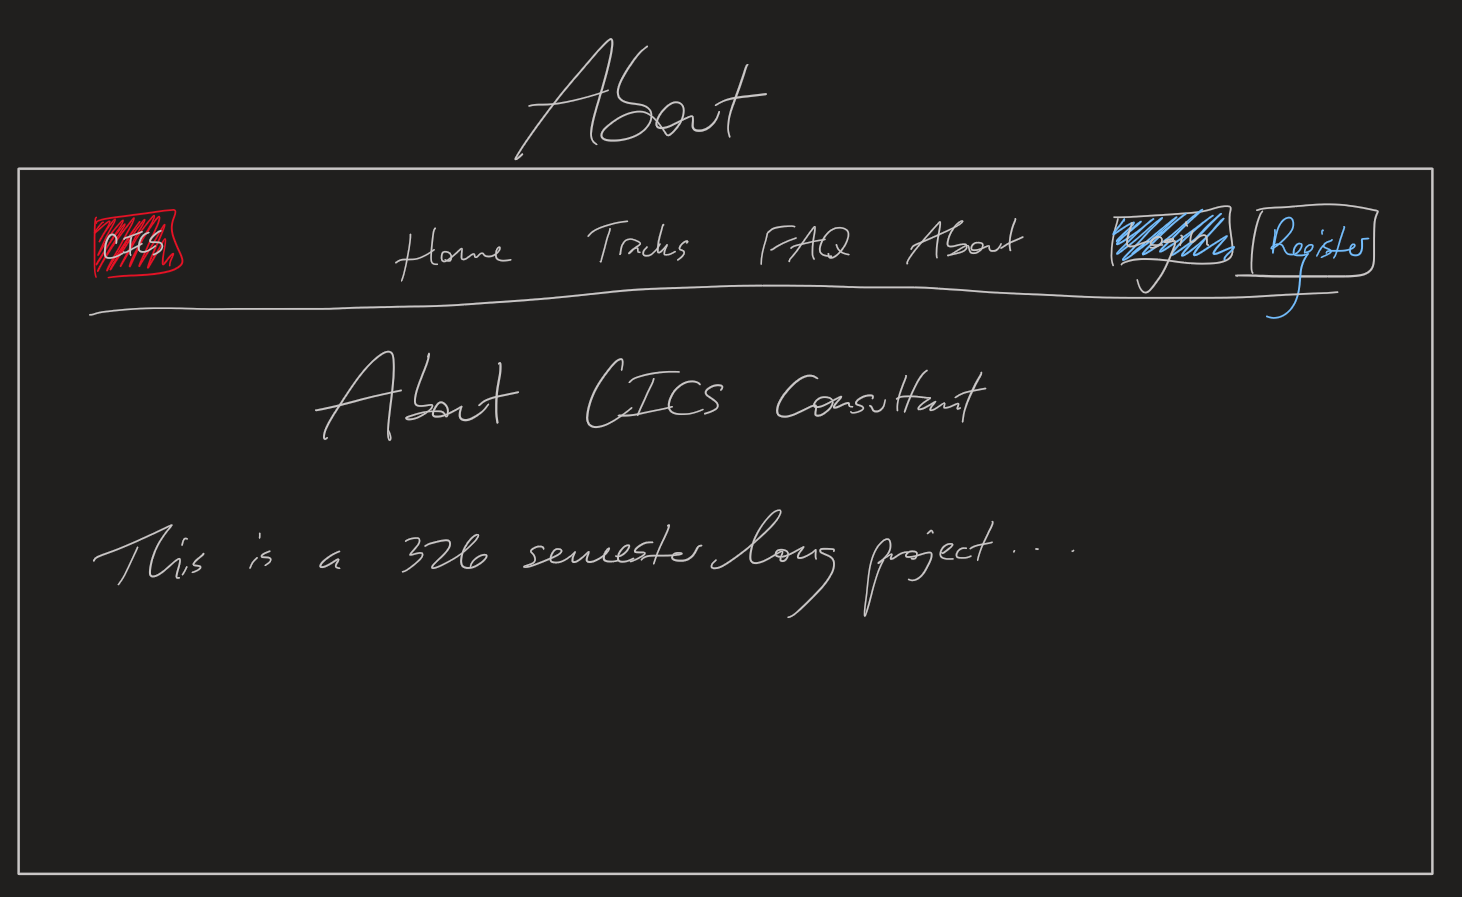 About
CICS Home Tracks FAQ About Login Register
About CICS Consultant
This is a 326 semester long project....